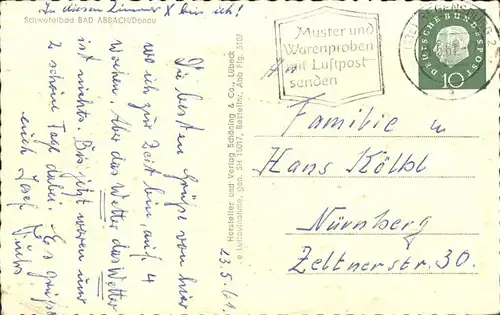 In diesem Zimmer X bin ich!
Schwefelbad BAD ABBACH/Donau
Die besten Grüße von hier
wo ich zur Zeit bin, auf 4
Wochen. Aber das Wetter das Wetter
ist nichts. Bis jetzt waren nur
2 schöne Tage dabei. Es grüßt
euch Josef
23.5.61.
Hersteller und Verlag Schöning & Co., Lübeck
© Luftaufnahme, gen. SH 15017, Bestellnr. Abb Flg. 5107
Muster und
Warenproben
mit Luftpost
senden
REGENSBURG
DEUTSCHE BUNDESPOST
10
An
Familie u
Hans Kölbl
Nürnberg
Zeltnerstr. 30.